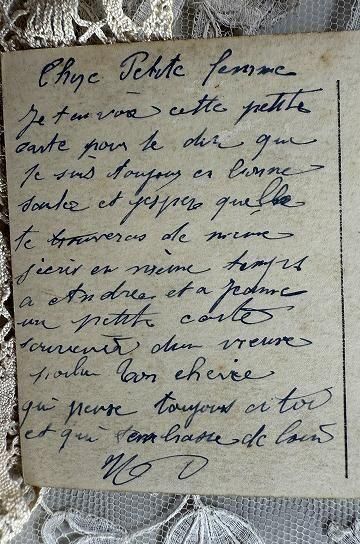 Chere Petite femme
Je t envois cette petite
carte pour te dire que
Je suis toujour en bonne
santer et jesper quelle
te trouveras de meme
jecris en meme temps
a Andrea et a Jeanne
un petite carte
souvenir dun vieux
poilu ton cheri
qui pense toujour a toi
et qui tembrasse de loin